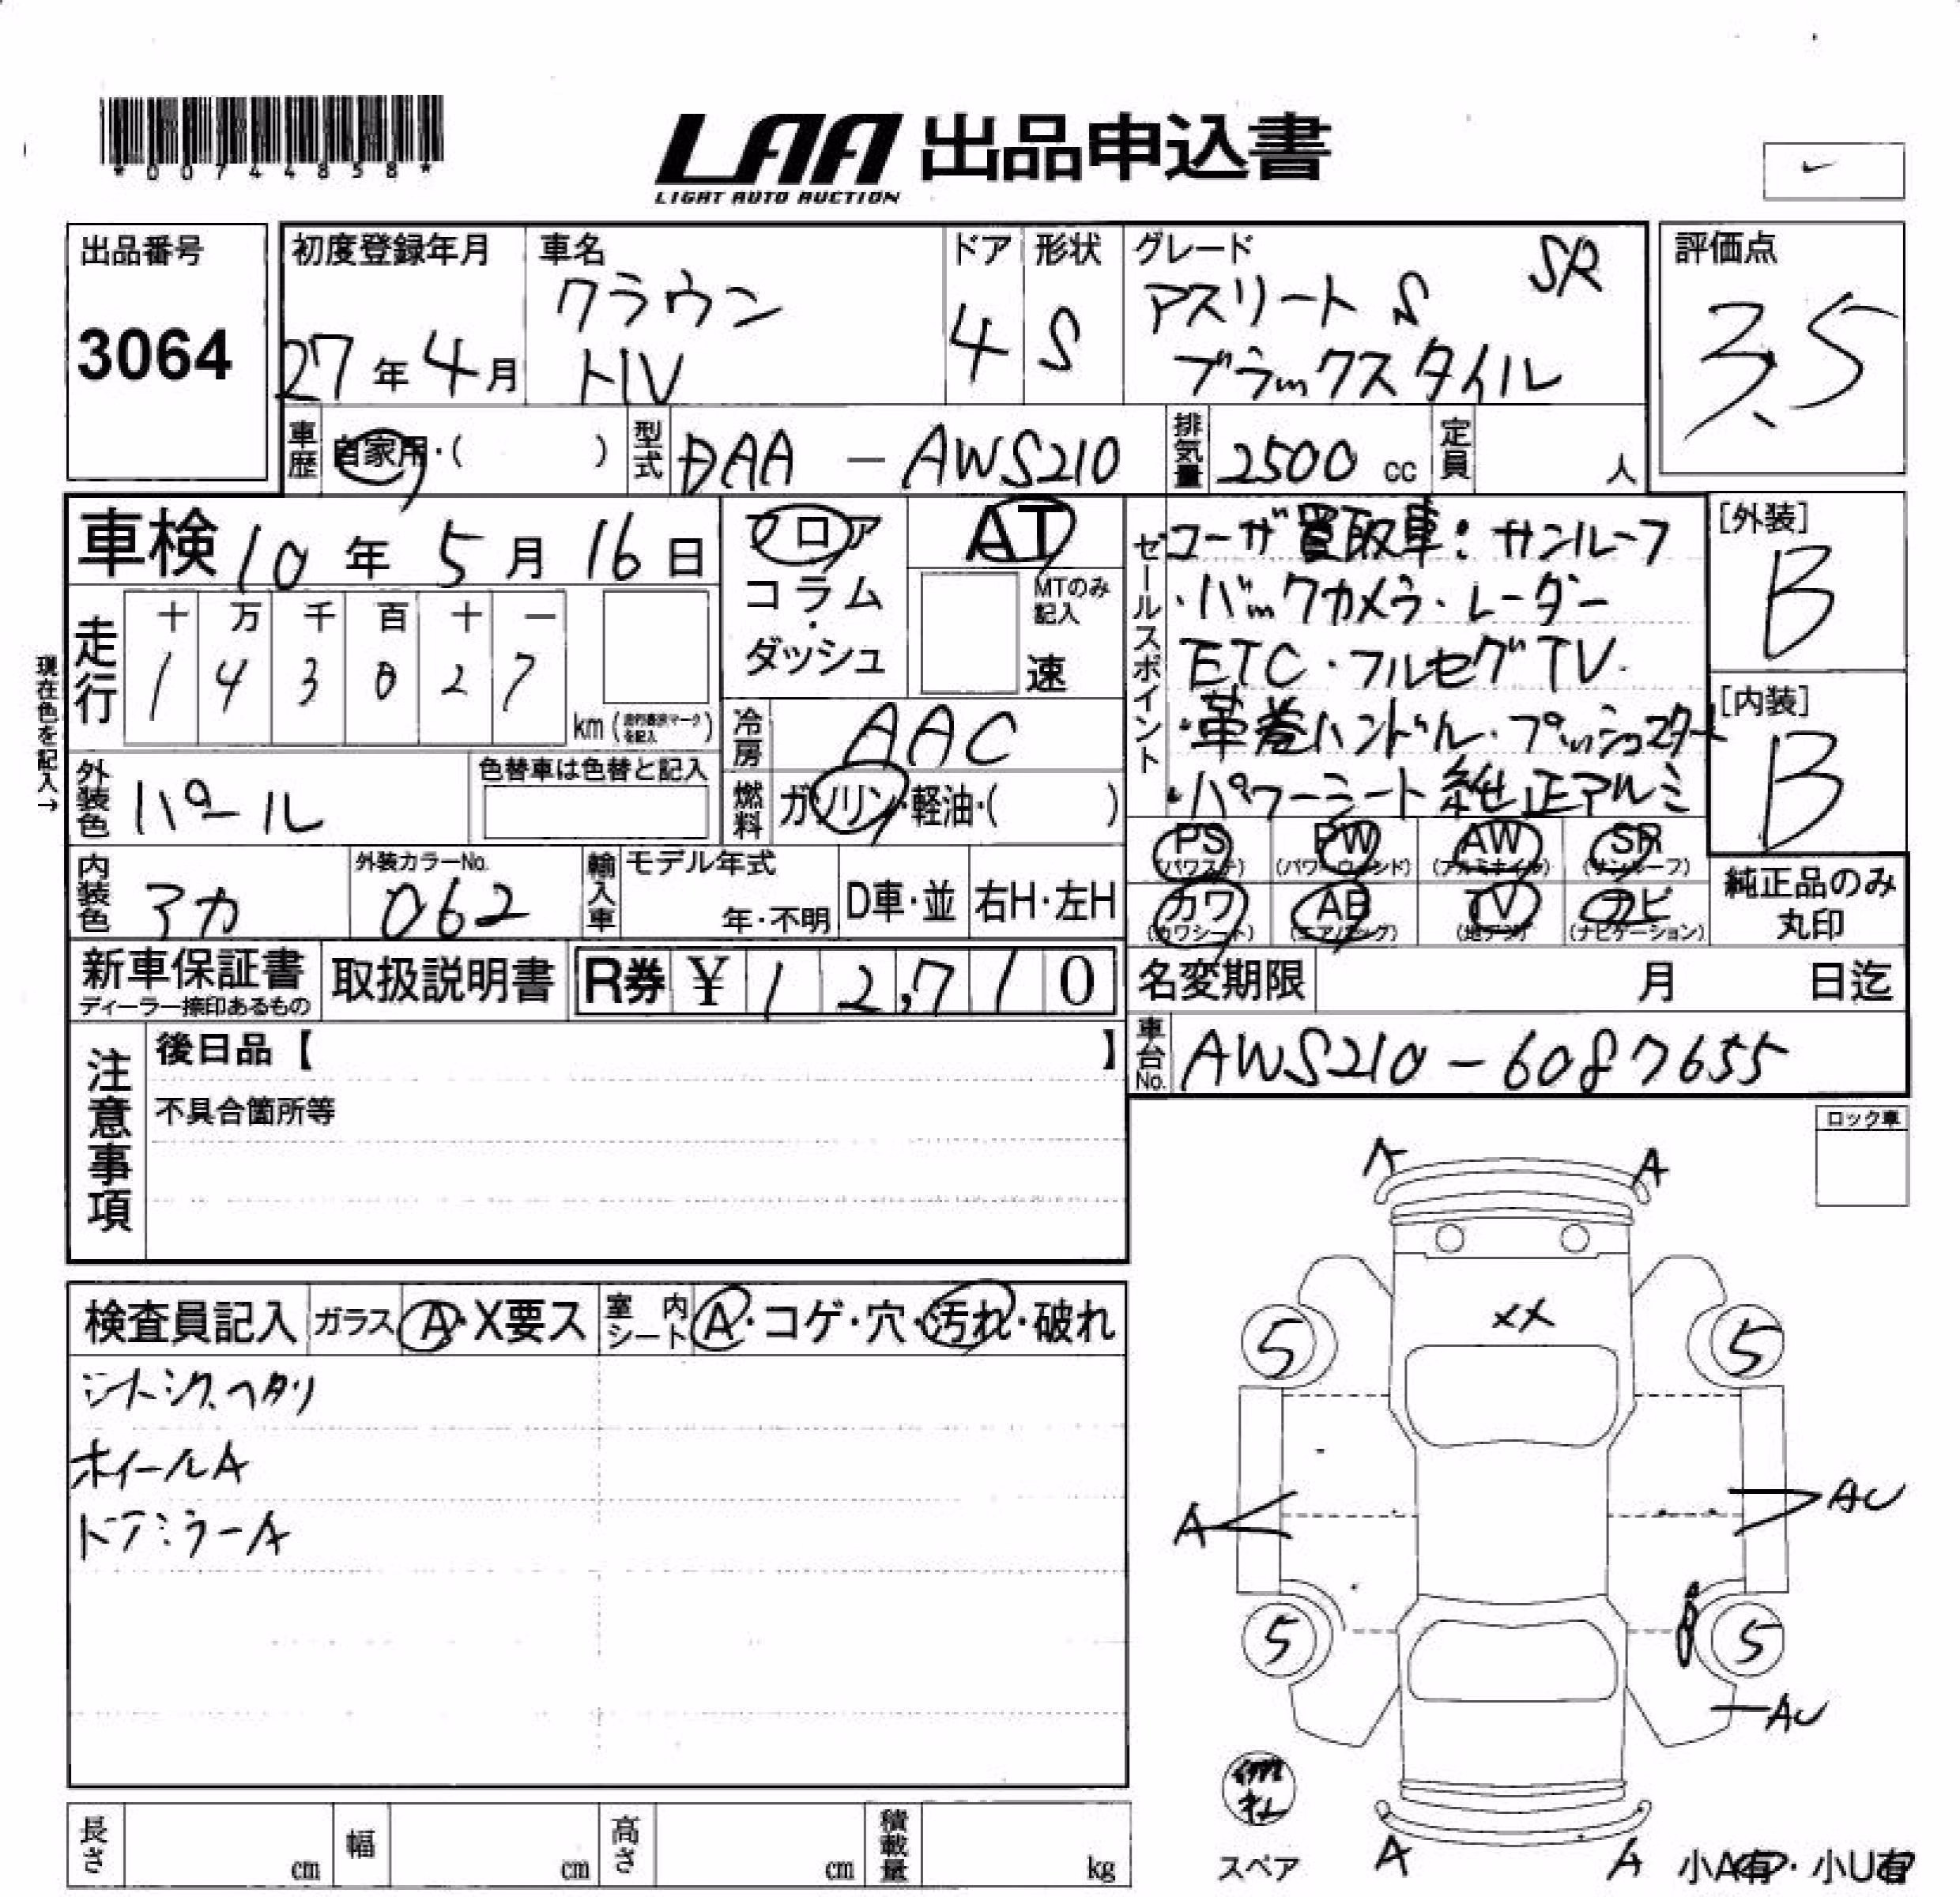 *00744858*
LAA 出品申込書
LIGHT AUTO AUCTION
出品番号
3064
初度登録年月
27年4月
車名
クラウン
HV
ドア
4
形状
S
グレード
SR
アスリート S
ブラックスタイル
評価点
3.5
車歴 自家用・( )
型式 DAA - AWS210
排気量 2500 cc
定員 人
車検 10年 5月 16日
フロア
コラム・
ダッシュ
AT
MTのみ記入
速
セールスポイント
ユーザ買取車: サンルーフ
・バックカメラ・レーダー
ETC・フルセグTV.
・革巻ハンドル・プッシュスタート
・パワーシート 純正アルミ
[外装]
B
[内装]
B
現在色を記入→
走行
十 万 千 百 十 一
1 4 3 0 2 7
km ( )
冷房 AAC
燃料 ガソリン・軽油・( )
外装色 パール
色替車は色替と記入
内装色 アカ
外装カラーNo.
062
輸入車
モデル年式
年・不明
D車・並
右H・左H
PS (パワステ)
PW (パワーウィンド)
AW (アルミホイル)
SR (サンルーフ)
カワ (カワシート)
AB (エアバッグ)
TV (地デジ)
ナビ (ナビゲーション)
純正品のみ
丸印
新車保証書
ディーラー捺印あるもの
取扱説明書
R券 ¥ 12,710
名変期限 月 日迄
車台No. AWS210-6087655
注意事項
後日品【 】
不具合箇所等
ロック車
検査員記入
ガラス A・X要ス
室内シート A・コゲ・穴・汚れ・破れ
シートシワ、ヘタリ
ホイールA
ドアミラーA
A A
XX
5 5
A AU
5 5
AU
スペア
A A
小A有・小U有
長さ cm
幅 cm
高さ cm
積載量 kg